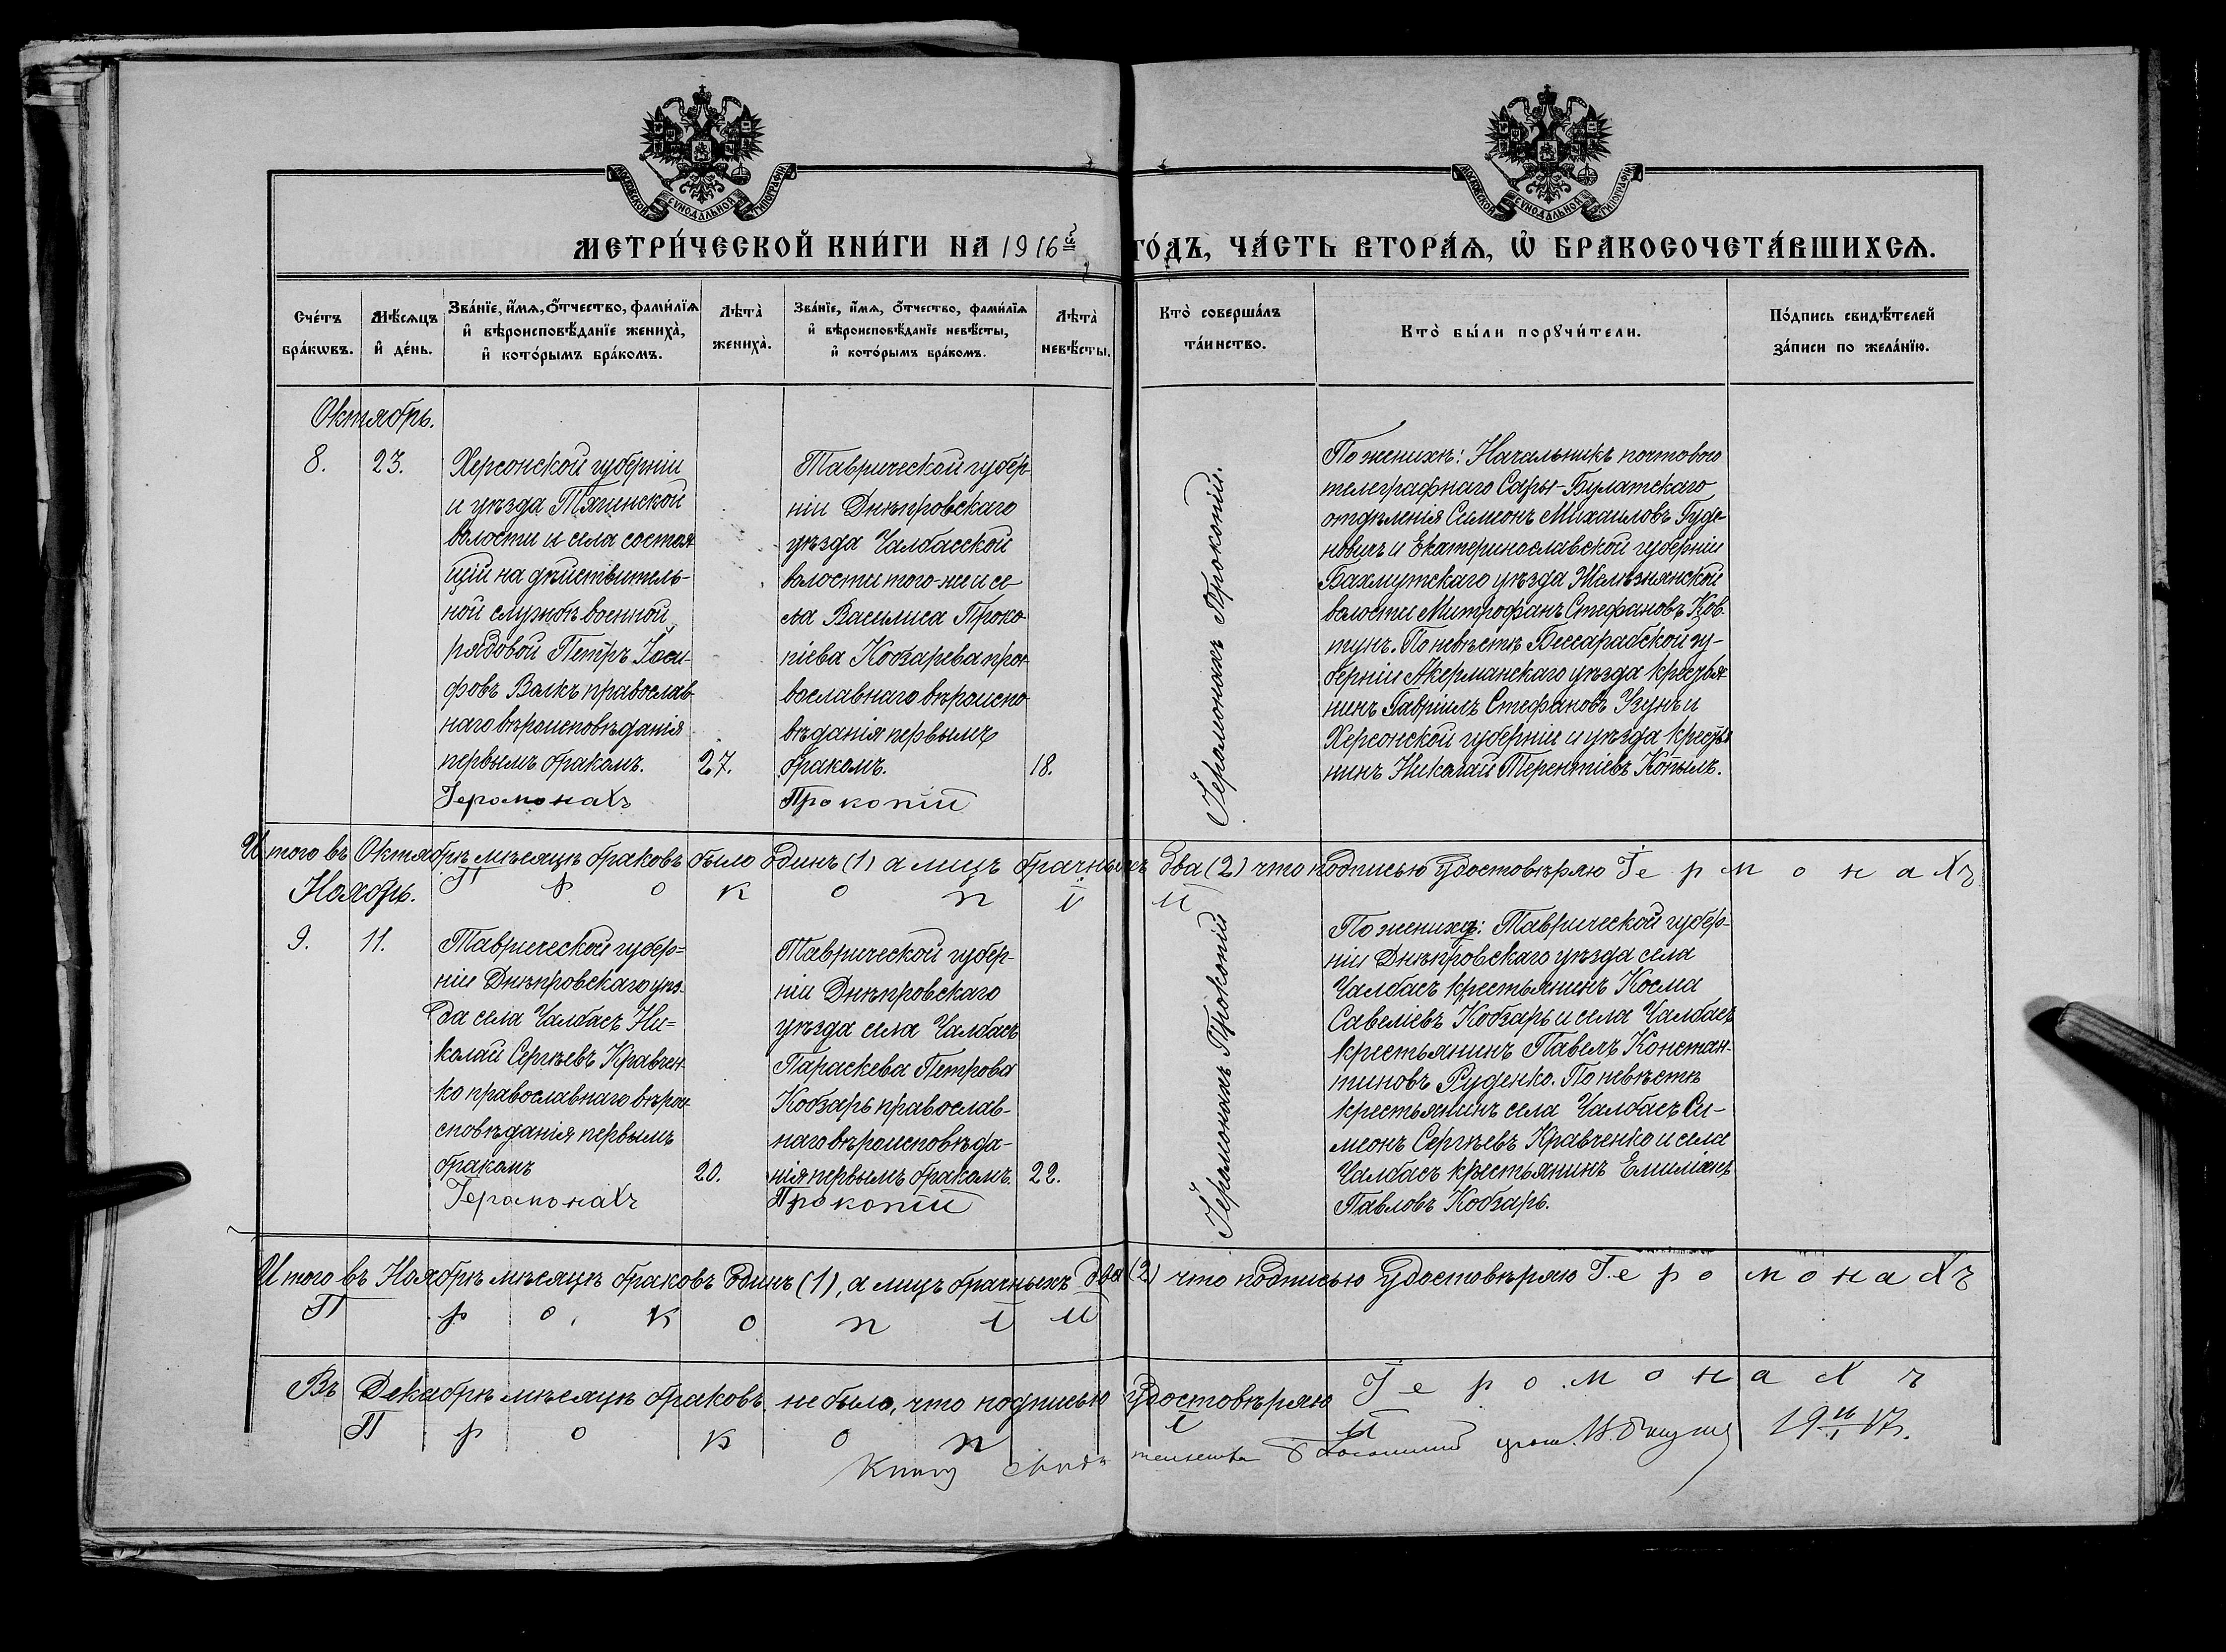 МОСКОВСКОЙ СѴНОДАЛЬНОЙ ТИПОГРАФІИ
МОСКОВСКОЙ СѴНОДАЛЬНОЙ ТИПОГРАФІИ
МЕТРИ́ЧЕСКОЙ КНИ́ГИ НА 1916й ГО́ДЪ, ЧА́СТЬ ВТОРА́Ѧ, Ѡ҆ БРАКОСОЧЕТА́ВШИХСѦ.
Сче́тъ
бра́кѡвъ.
Мѣ́сѧцъ
и҆ де́нь.
Зва́нїе, и҆́мѧ, ѻ҆́тчество, фами́лїѧ
и҆ вѣроисповѣ́данїе жениха̀,
и҆ кото́рымъ бра́комъ.
Лѣта̀
жениха̀.
Зва́нїе, и҆́мѧ, ѻ҆́тчество, фами́лїѧ
и҆ вѣроисповѣ́данїе невѣ́сты,
и҆ кото́рымъ бра́комъ.
Лѣта̀
невѣ́сты.
Кто̀ соверша́лъ
та́инство.
Кто̀ бы́ли порꙋчи́тели.
По́дпись свидѣ́телей
за́писи по жела́нїю.
Октябрь.
8.
23.
Херсонской губерніи
и уѣзда Тягинской
волости и села состоя-
щій на дѣйствитель-
ной службѣ военной
рядовой Петръ Іоси-
фовъ Волкъ православ-
наго вѣроисповѣданія
первымъ бракомъ.
27.
Іеромонахъ
Таврической губер-
ніи Днѣпровскаго
уѣзда Чалбасской
волости того-же и се
ла Василиса Проко
піева Кобзарева пра-
вославнаго вѣроиспо
вѣданія первымъ
бракомъ.
18.
Прокопій
Іеромонахъ Прокопій.
По женихѣ: Начальникъ почтового
телеграфнаго Сары-Булатскаго
отдѣленія Симеонъ Михаиловъ Гуде-
новичъ и Екатеринославской губерніи
Бахмутскаго уѣзда Желѣзнянской
волости Митрофанъ Стефановъ Ков-
тунъ. По невѣстѣ Бессарабской гу-
берніи Акерманскаго уѣзда крестья-
нинъ Гавріилъ Стефановъ Узунъ и
Херсонской губерніи и уѣзда крестья
нинъ Николай Терентіевъ Копылъ.
Итого въ Октябрѣ мѣсяцѣ браковъ было Одинъ (1) а лицъ брачныхъ Два (2) что подписью удостовѣряю Іермонахъ
Прокопій
Ноябрь.
9.
11.
Таврической губер=
ніи Днѣпровскаго уѣз-
да села Чалбасъ Ни=
колай Сергѣевъ Кравчен-
ко православнаго вѣрои-
сповѣданія первымъ
бракомъ
20.
Іеромонахъ
Таврической губер-
ніи Днѣпровскаго
уѣзда села Чалбасъ
Параскева Петрова
Кобзарь православ-
наго вѣроисповѣда-
нія первымъ бракомъ.
22.
Прокопій
Іеромонахъ Прокопій
По женихѣ: Таврической губер-
ніи Днѣпровскаго уѣзда села
Чалбасъ крестьянинъ Косма
Савеліевъ Кобзарь и села Чалбасъ
крестьянинъ Павелъ Констан-
тиновъ Руденко. По невѣстѣ
крестьянинъ села Чалбасъ Си-
меонъ Сергѣевъ Кравченко и села
Чалбасъ крестьянинъ Емиліанъ
Павловъ Кобзарь.
Итого въ Ноябрѣ мѣсяцѣ браковъ Одинъ (1), а лицъ брачныхъ два (2) что подписью удостовѣряю Іеромонахъ
Прокопій
Въ Декабрѣ мѣсяцѣ браковъ не было, что подписью удостовѣряю Іеромонахъ
Прокопій
Книгу